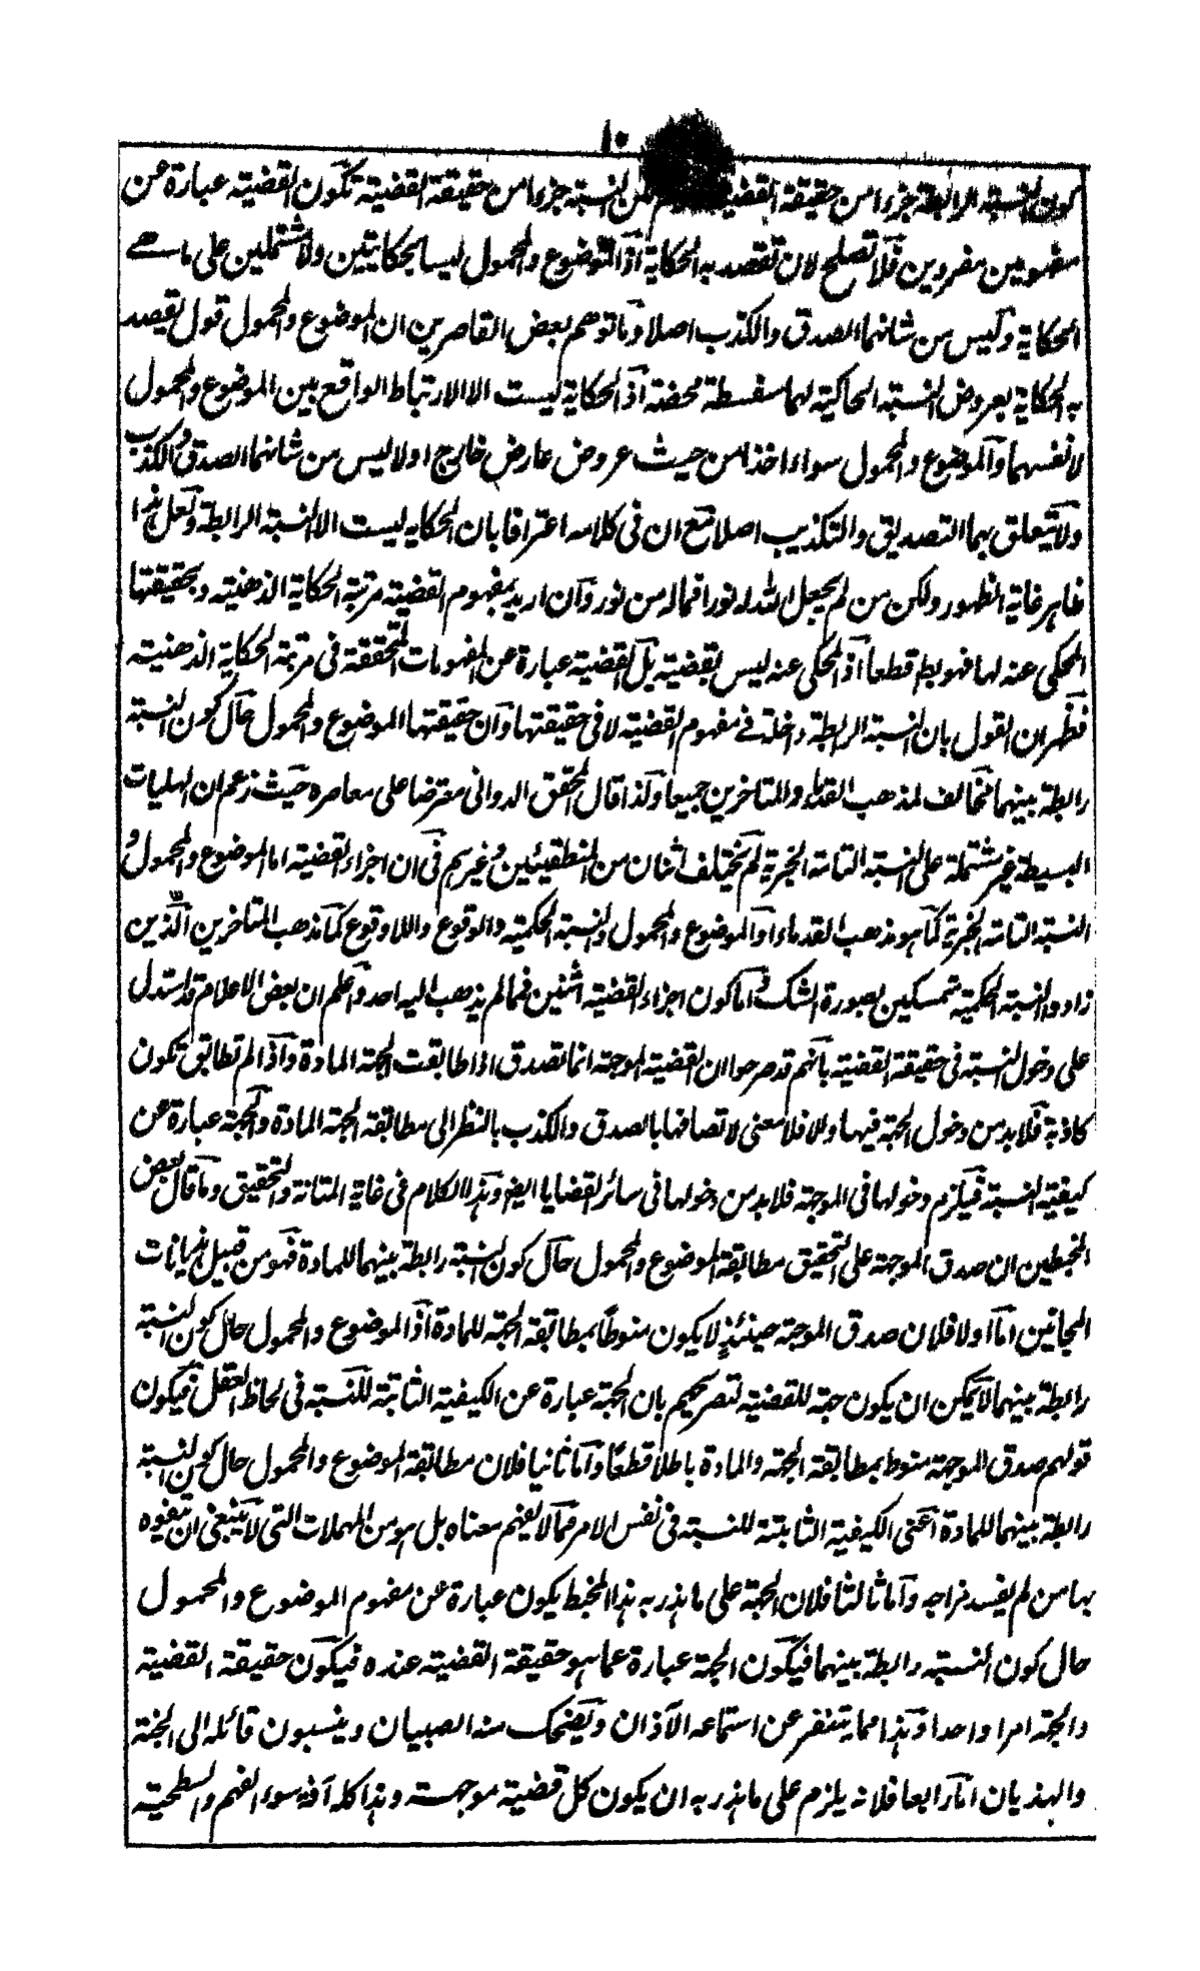 ١٠
كون النسبة الرابطة جزءا من حقيقة القضية لم تكن النسبة جزءا من حقيقة القضية تكون القضية عبارة عن
مفهومين مفردين فلا تصلح لان تقصد به الحكاية اذ الموضوع والمحمول ليسا بحكايتين ولا مشتملين على ما هے
الحكاية وليس من شانهما الصدق والكذب اصلا وما توهم بعض القاصرين ان الموضوع والمحمول قول يقصد
به الحكاية بعروض النسبة الحاكية لهما سفسطة محضة اذ الحكاية ليست الا الارتباط الواقع بين الموضوع والمحمول
لا نفسهما والموضوع والمحمول سواء اخذا من حيث عروض عارض خارج او لا ليس من شانهما الصدق والكذب
ولا يتعلق بهما التصديق والتكذيب اصلا مع ان فى كلامه اعترافا بان الحكايه ليست الا النسبة الرابطة ولعل هذا
ظاهر غاية الظهور ولكن من لم يجعل الله له نورا فما له من نور وان اريد بمفهوم القضية مرتبة الحكاية الذهنية وبحقيقتها
المحكى عنه لها فهو بط قطعا اذ المحكى عنه ليس بقضية بل القضية عبارة عن المفهومات المتحققة فى مرتبة الحكاية الذهنية
فظهر ان القول بان النسبة الرابطة داخلة فے مفهوم القضية لا فى حقيقتها وان حقيقتها الموضوع والمحمول حال كون النسبة
رابطة بينهما مخالف لمذهب القدماء والمتاخرين جميعا ولذا قال المحقق الدوانى معترضا على معاصره حيث زعم ان الهليات
البسيطة غير مشتملة على النسبة التامة الخبرية لم يختلف اثنان من المنطقيين وغيرهم فى ان اجزاء القضية اما الموضوع والمحمول و
النسبة التامة الخبرية كما هو مذهب القدماء او الموضوع والمحمول والنسبة الحكمية والوقوع واللاوقوع كما مذهب المتاخرين الذين
زادوا النسبة الحكمية متمسكين بصورة الشك واما كون اجزاء القضية اثنين فمالم يذهب اليه احد واعلم ان بعض الاعلام قد استدل
على دخول النسبة فى حقيقة القضية بانهم قد صرحوا ان القضية الموجهة انما تصدق اذا طابقت الجهة المادة واذا لم تطابق تكون
كاذبة فلابد من دخول الجهة فيها والا فلا معنى لاتصافها بالصدق والكذب بالنظر الى مطابقة الجهة المادة والجهة عبارة عن
كيفية النسبة فيلزم دخولها فى الموجهة فلابد من دخولها فى سائر القضايا ايضا وهذا الكلام فى غاية المتانة والتحقيق وما قال بعض
المخبطين ان صدق الموجهة على التحقيق مطابقة الموضوع والمحمول حال كون النسبة رابطة بينهما للمادة فهو من قبيل هذيانات
المجانين اما اولا فلان صدق الموجهة حينئذٍ لا يكون منوطا بمطابقة الجهة للمادة اذ الموضوع والمحمول حال كون النسبة
رابطة بينهما لا يمكن ان يكون جهة للقضية لتصريحهم بان الجهة عبارة عن الكيفية الثابتة للنسبة فى لحاظ العقل فيكون
قولهم صدق الموجهة منوط بمطابقة الجهة والمادة باطلا قطعا واما ثانيا فلان مطابقة الموضوع والمحمول حال كون النسبة
رابطة بينهما للمادة اعنى الكيفية الثابتة للنسبة فى نفس الامر مما لا يفهم معناه بل هو من المهملات التى لا ينبغى ان يتفوه
بها من لم يفسد مزاجه واما ثالثا فلان الجهة على ما هذر به هذا المخبط يكون عبارة عن مفهوم الموضوع والمحمول
حال كون النسبة رابطة بينهما فيكون الجهة عبارة عما هو حقيقة القضية عنده فيكون حقيقة القضية
والجهة امرا واحدا وهذا مما يتنفر عن استماعه الآذان ويضحك منه الصبيان وينسبون قائله الى الجنة
والهذيان اما رابعا فلانه يلزم على ما هذر به ان يكون كل قضية موجهة وهذا كله آفة سوء الفهم والسطحية